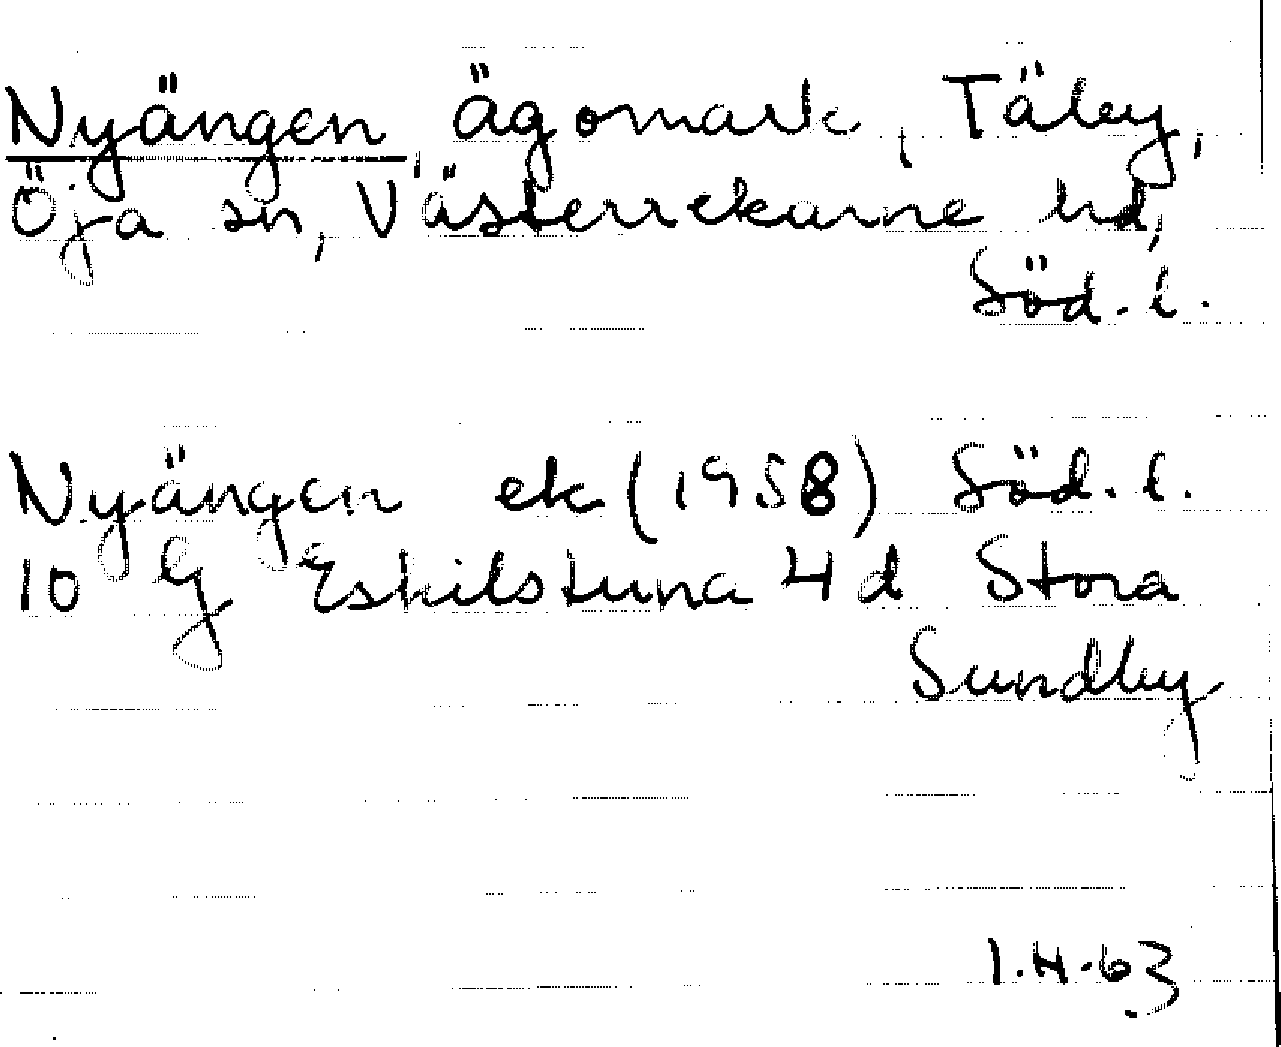 Nyängen, ägomark, Täby,
Öja sn, Västerrekarne hd,
Söd. l.
Nyängen ek (1958) Söd. l.
10 G Eskilstuna 4 d Stora
Sundby
I.H.63